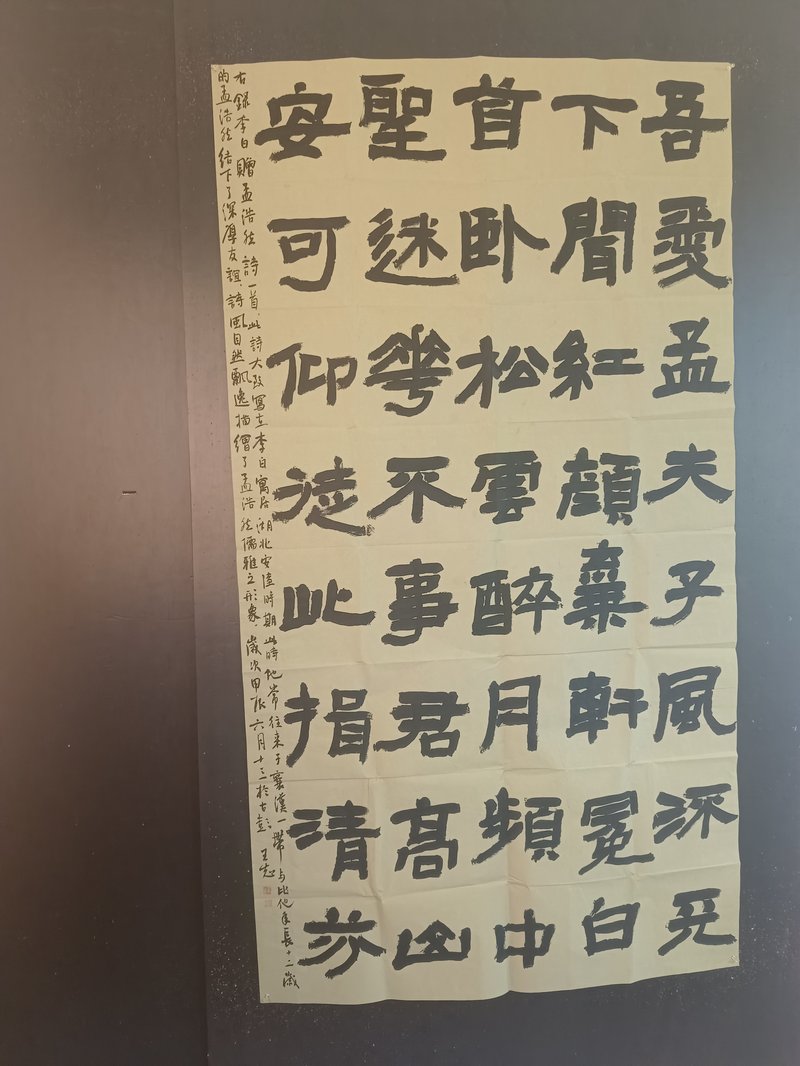 吾愛孟夫子風流天
下聞紅顏棄軒冕白
首卧松雲醉月頻中
聖迷花不事君高山
安可仰徒此揖清芬
右錄李白贈孟浩然詩一首，此詩大致寫在李白寓居湖北安陸時期此時他常往来于襄漢一帶与比他年長十二歲
的孟浩然結下了深厚友誼，詩風自然飄逸描繪了孟浩然儒雅之形象，歲次甲辰六月十三於古彭 王志